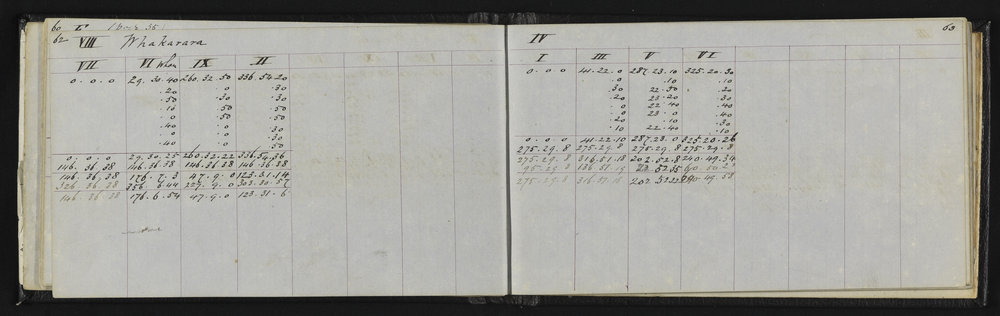 60
62 VIII Whakarara
VII VI When IX II
0.0.0 29.30.40 260.32.50 336.54.20
.20 .0 .30
.50 .30 .30
.10 .50 .50
.0 .50 .50
.40 .0
.0 .0 .30
.0 .0 .30
.40 .0 .50
0.0.0 29.30.25 260.32.22 336.54.36
146.36.38 146.36.38 146.36.38 146.36.38
146.36.38 176.7.3 47.9.0 123.31.14
326.36.38 356.6.44 227.9.0 303.30.57
146.36.38 176.6.54 47.9.0 123.31.6
IV 63
I III V VI
0.0.0 41.22.0 287.23.10 325.20.30
.0 .10 .10
.30 22.50 .20
.20 23.20 .30
.0 22.40 .40
.0 23.0 .40
.20 .10 .30
.10 22.40 .10
0.0.0 41.22.10 287.23.0 325.20.26
275.29.8 275.29.8 275.29.8 275.29.8
275.29.8 316.51.18 202.52.8 240.49.34
95.29.8 136.51.19
275.29.8 316.51.18